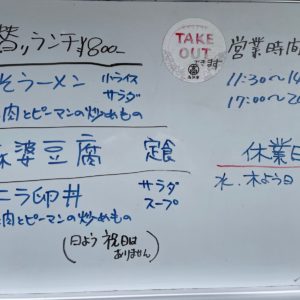 替りランチ¥800-
そラーメン 小ライス
サラダ
肉とピーマンの炒めもの
麻婆豆腐 定食
ニラ卵丼 サラダ
スープ
肉とピーマンの炒めもの
(日よう祝日は
ありません)
TAKE
OUT
できます
営業時間
11:30~14
17:00~2
休業日
水.木よう日